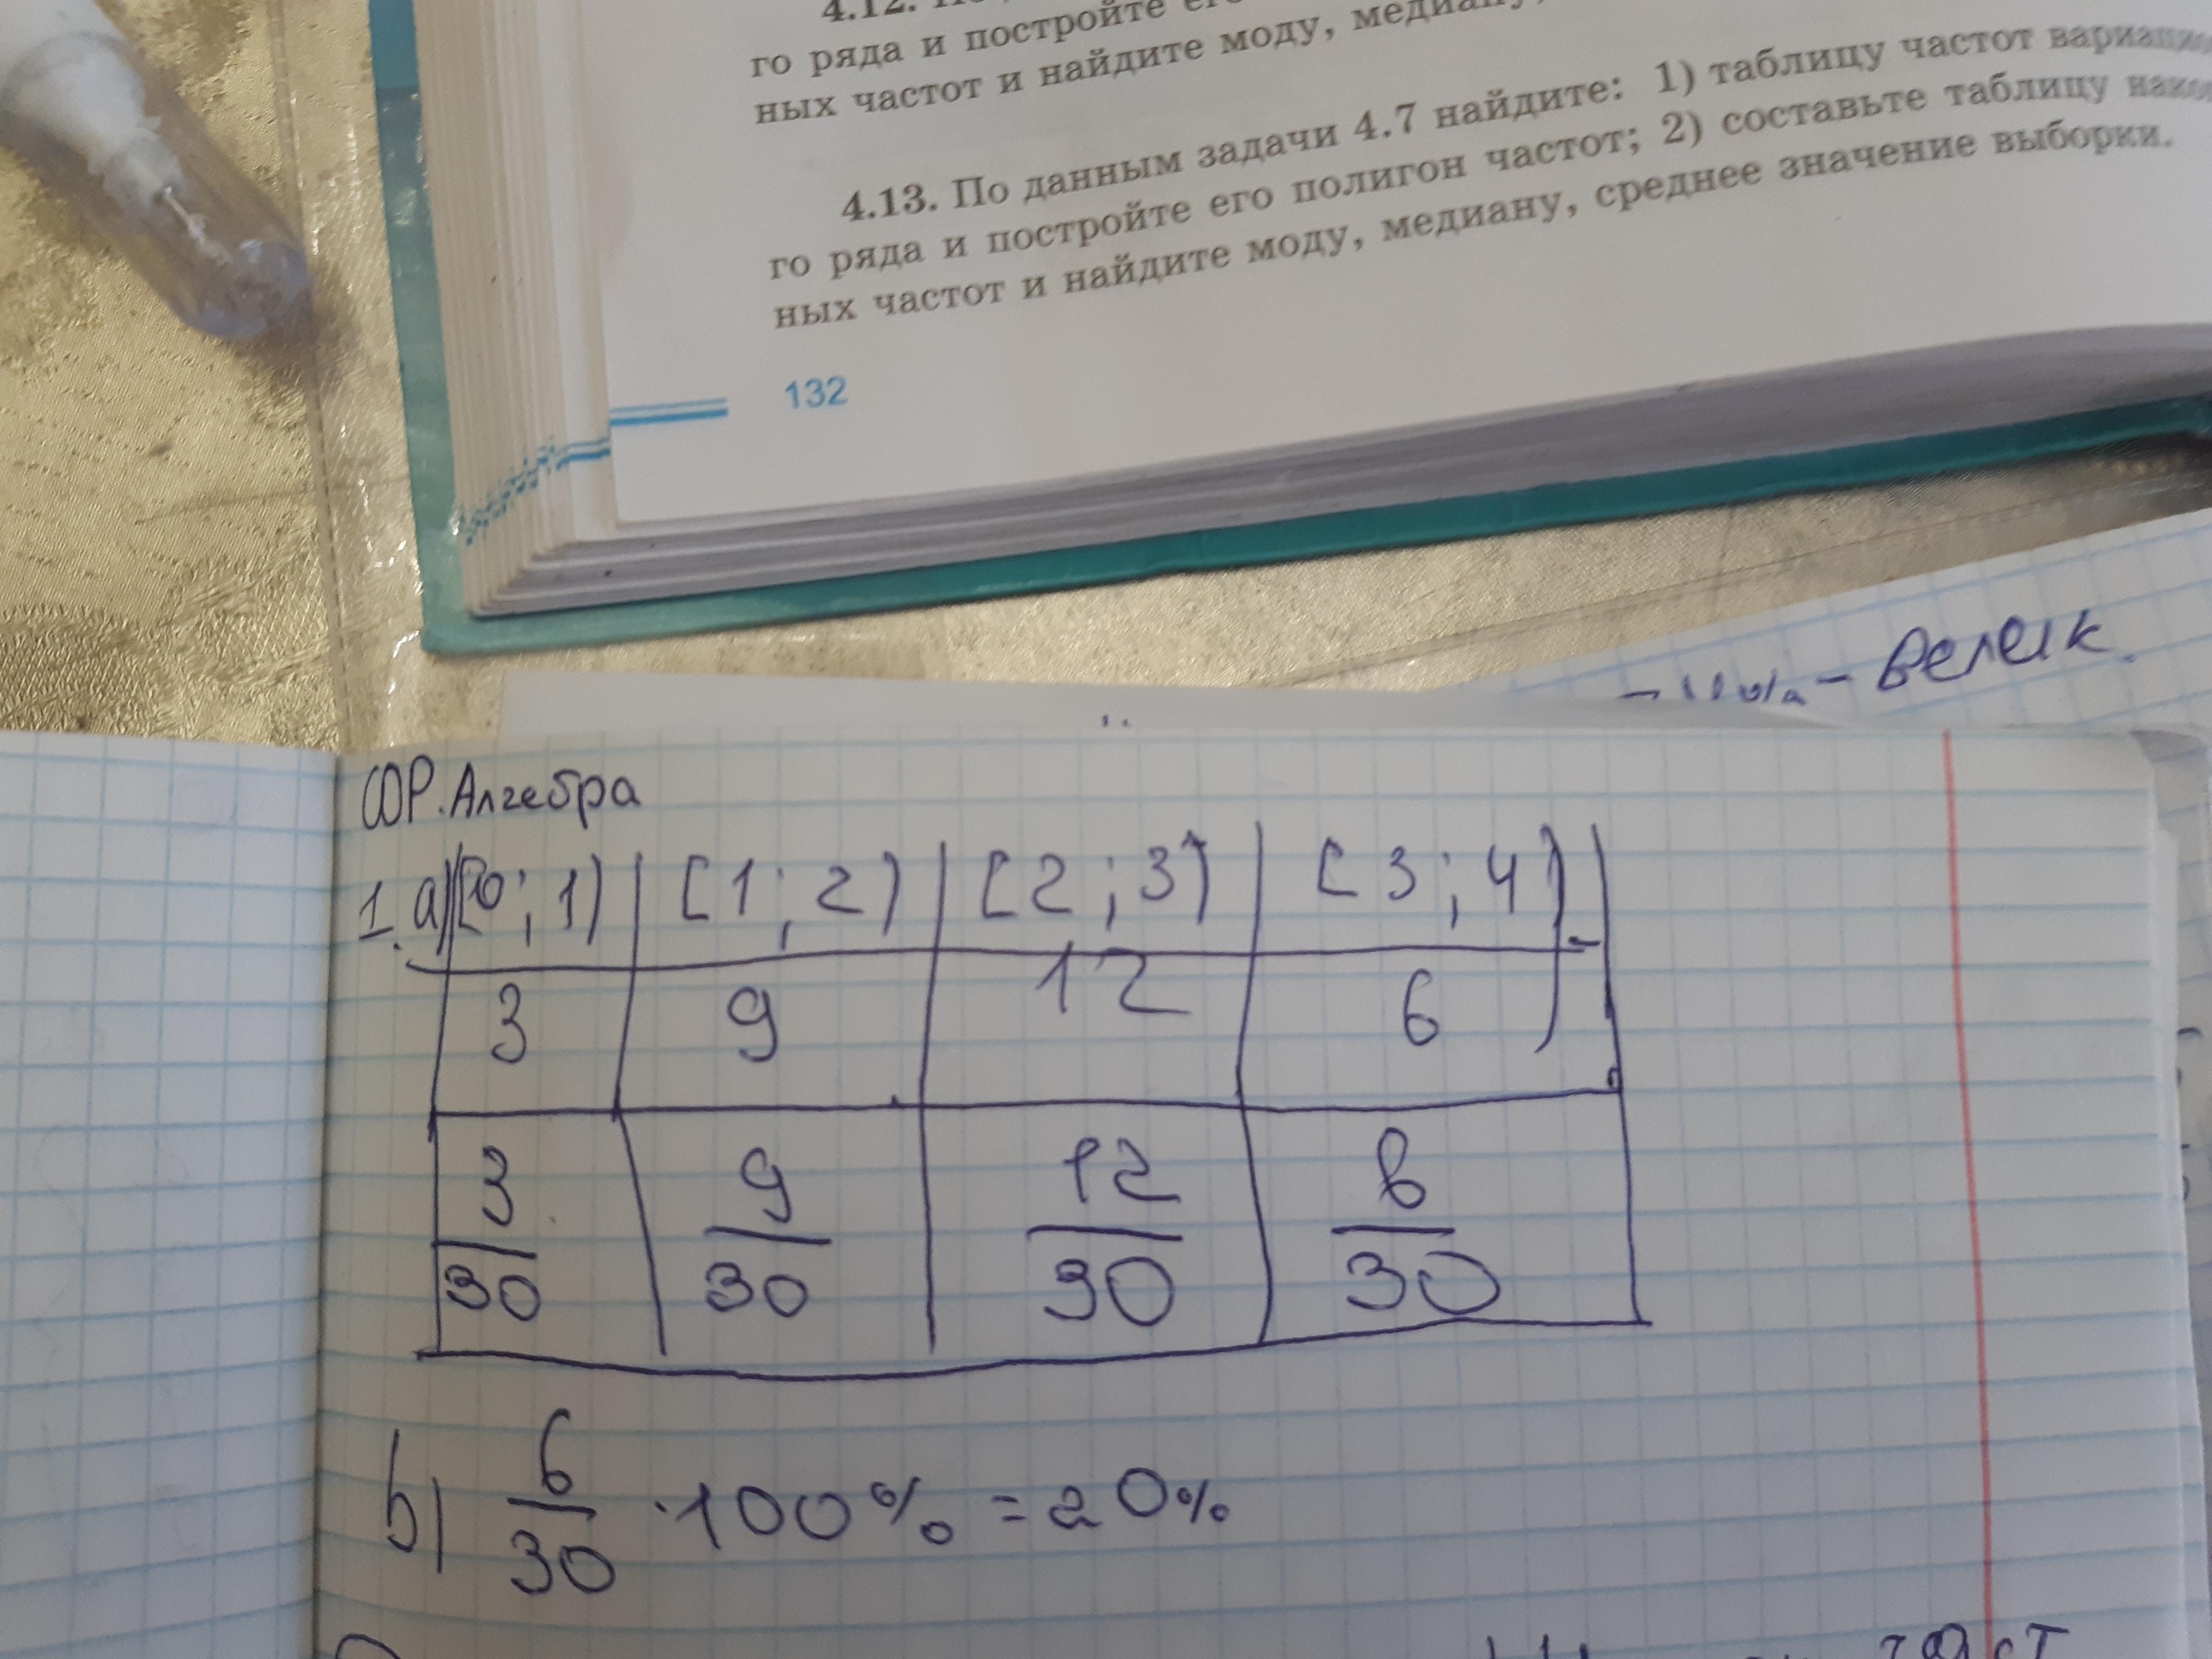 4.12.
го ряда и постройте его
ных частот и найдите моду, медиану,
4.13. По данным задачи 4.7 найдите: 1) таблицу частот
го ряда и постройте его полигон частот; 2) составьте таблицу
ных частот и найдите моду, медиану, среднее значение выборки.
132
СОР. Алгебра
1. a) [0; 1) [1; 2) [2; 3) [3; 4)
3 9 12 6
3/30 9/30 12/30 6/30
b) 6/30 · 100% = 20%